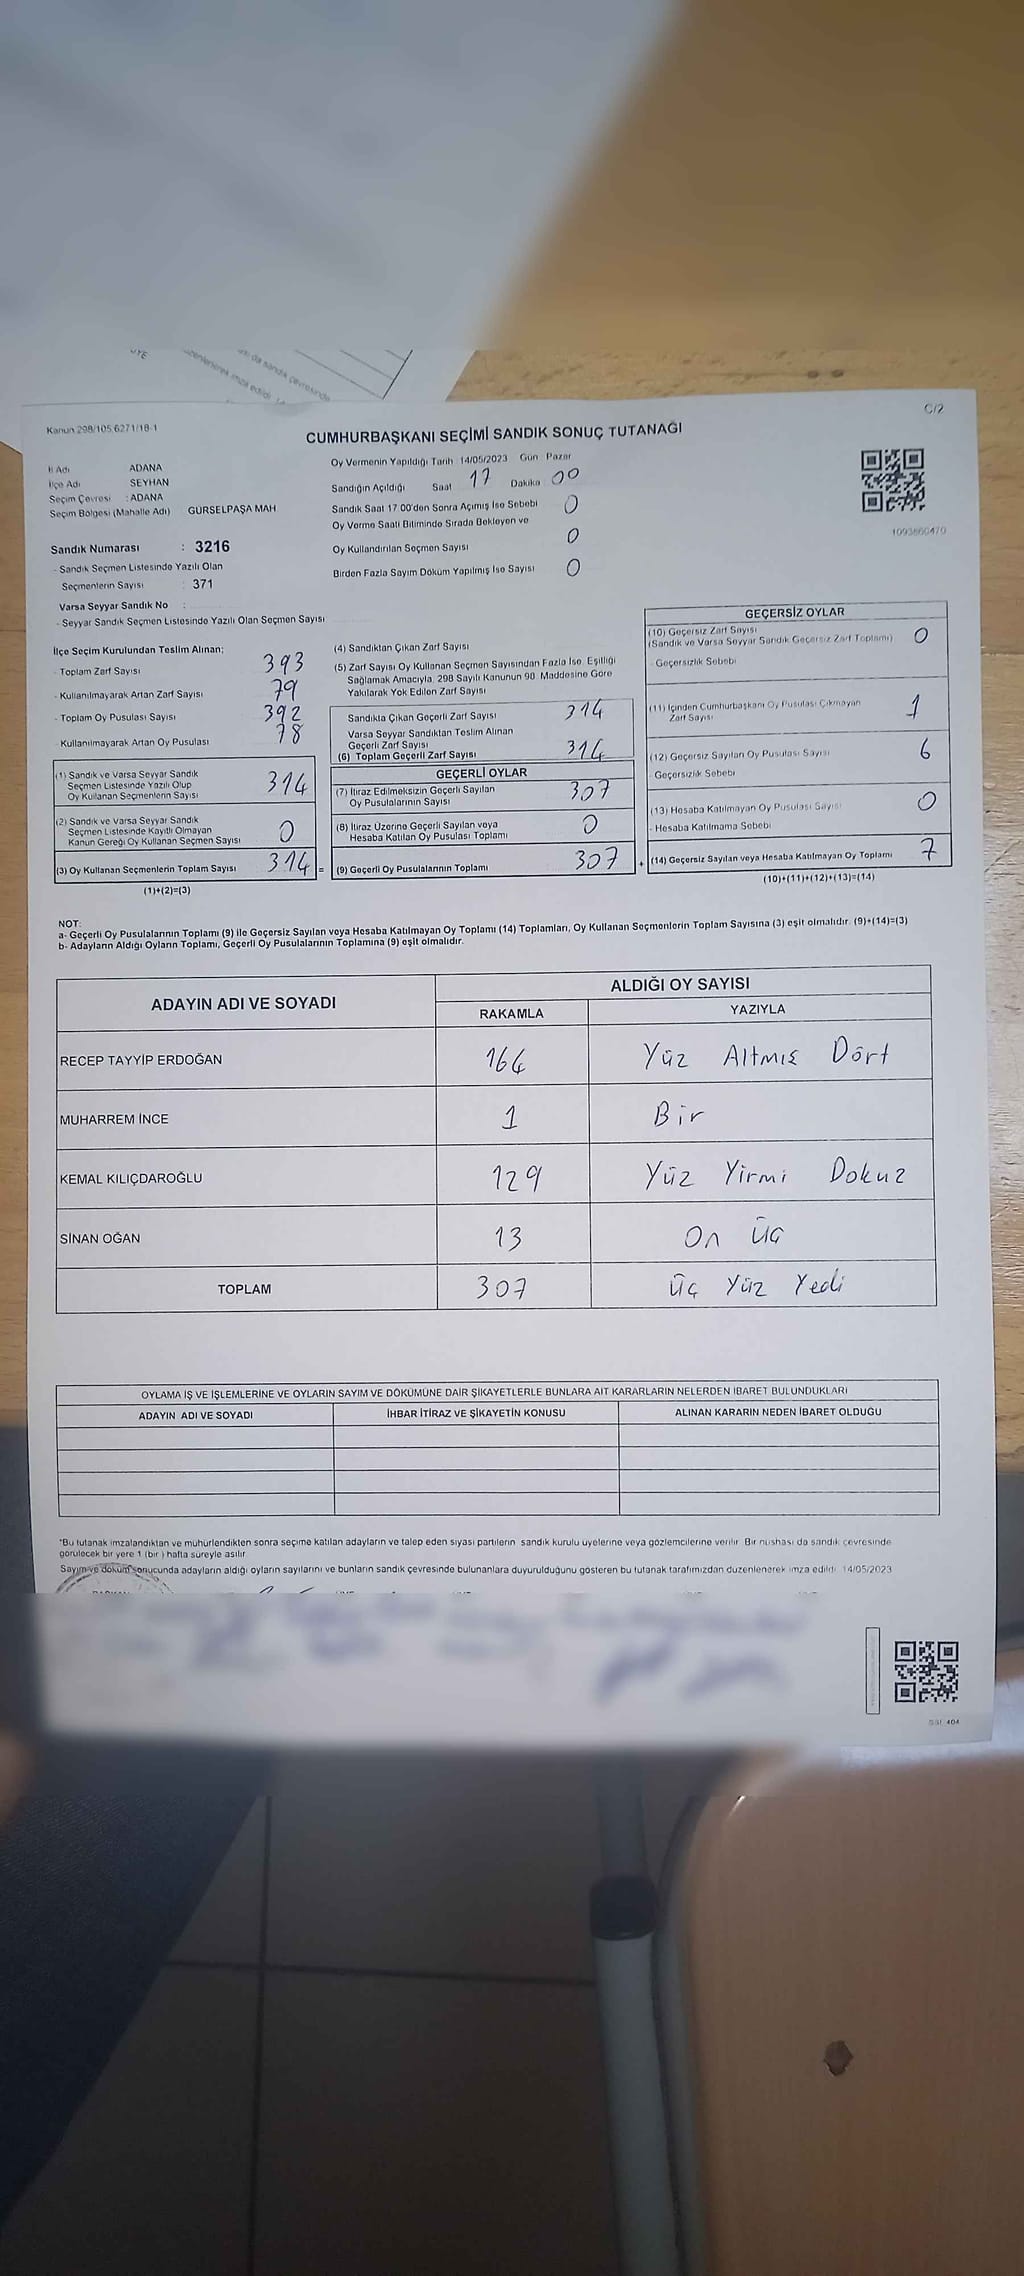 ÜYE
C/2
Kanun 298/105 6271/18-1
CUMHURBAŞKANI SEÇİMİ SANDIK SONUÇ TUTANAĞI
İl Adı ADANA
İlçe Adı SEYHAN
Seçim Çevresi : ADANA
Seçim Bölgesi (Mahalle Adı) GÜRSELPAŞA MAH
Sandık Numarası : 3216
- Sandık Seçmen Listesinde Yazılı Olan
Seçmenlerin Sayısı 371
Varsa Seyyar Sandık No :
- Seyyar Sandık Seçmen Listesinde Yazılı Olan Seçmen Sayısı
Oy Vermenin Yapıldığı Tarih 14/05/2023 Gün Pazar
Sandığın Açıldığı Saat 17 Dakika 00
Sandık Saat 17 00'den Sonra Açımış İse Sebebi 0
Oy Verme Saati Bitiminde Sırada Bekleyen ve
Oy Kullandırılan Seçmen Sayısı 0
Birden Fazla Sayım Döküm Yapılmış İse Sayısı 0
1093860470
İlçe Seçim Kurulundan Teslim Alınan;
- Toplam Zarf Sayısı 393
- Kullanılmayarak Artan Zarf Sayısı 79
- Toplam Oy Pusulası Sayısı 392
- Kullanılmayarak Artan Oy Pusulası 78
(1) Sandık ve Varsa Seyyar Sandık
Seçmen Listesinde Yazılı Olup
Oy Kullanan Seçmenlerin Sayısı 314
(2) Sandık ve Varsa Seyyar Sandık
Seçmen Listesinde Kayıtlı Olmayan
Kanun Gereği Oy Kullanan Seçmen Sayısı 0
(3) Oy Kullanan Seçmenlerin Toplam Sayısı 314 =
(1)+(2)=(3)
(4) Sandıktan Çıkan Zarf Sayısı
(5) Zarf Sayısı Oy Kullanan Seçmen Sayısından Fazla İse, Eşitliği
Sağlamak Amacıyla, 298 Sayılı Kanunun 98. Maddesine Göre
Yakılarak Yok Edilen Zarf Sayısı
Sandıkta Çıkan Geçerli Zarf Sayısı 314
Varsa Seyyar Sandıktan Teslim Alınan
Geçerli Zarf Sayısı
(6) Toplam Geçerli Zarf Sayısı 314
GEÇERLİ OYLAR
(7) İtiraz Edilmeksizin Geçerli Sayılan
Oy Pusulalarının Sayısı 307
(8) İtiraz Üzerine Geçerli Sayılan veya
Hesaba Katılan Oy Pusulası Toplamı 0
(9) Geçerli Oy Pusulalarının Toplamı 307 +
GEÇERSİZ OYLAR
(10) Geçersiz Zarf Sayısı
(Sandık ve Varsa Seyyar Sandık Geçersiz Zarf Toplamı) 0
- Geçersizlik Sebebi
(11) İçinden Cumhurbaşkanı Oy Pusulası Çıkmayan
Zarf Sayısı 1
(12) Geçersiz Sayılan Oy Pusulası Sayısı 6
- Geçersizlik Sebebi
(13) Hesaba Katılmayan Oy Pusulası Sayısı 0
- Hesaba Katılmama Sebebi
(14) Geçersiz Sayılan veya Hesaba Katılmayan Oy Toplamı 7
(10)+(11)+(12)+(13)=(14)
NOT:
a- Geçerli Oy Pusulalarının Toplamı (9) ile Geçersiz Sayılan veya Hesaba Katılmayan Oy Toplamı (14) Toplamları, Oy Kullanan Seçmenlerin Toplam Sayısına (3) eşit olmalıdır. (9)+(14)=(3)
b- Adayların Aldığı Oyların Toplamı, Geçerli Oy Pusulalarının Toplamına (9) eşit olmalıdır.
ADAYIN ADI VE SOYADI ALDIĞI OY SAYISI
RAKAMLA YAZIYLA
RECEP TAYYİP ERDOĞAN 164 Yüz Altmış Dört
MUHARREM İNCE 1 Bir
KEMAL KILIÇDAROĞLU 129 Yüz Yirmi Dokuz
SİNAN OĞAN 13 On Üç
TOPLAM 307 Üç Yüz Yedi
OYLAMA İŞ VE İŞLEMLERİNE VE OYLARIN SAYIM VE DÖKÜMÜNE DAİR ŞİKAYETLERLE BUNLARA AİT KARARLARIN NELERDEN İBARET BULUNDUKLARI
ADAYIN ADI VE SOYADI İHBAR İTİRAZ VE ŞİKAYETİN KONUSU ALINAN KARARIN NEDEN İBARET OLDUĞU
*Bu tutanak imzalandıktan ve mühürlendikten sonra seçime katılan adayların ve talep eden siyasi partilerin sandık kurulu üyelerine veya gözlemcilerine verilir. Bir nüshası da sandık çevresinde
görülecek bir yere 1 (bir ) hafta süreyle asılır
Sayım ve döküm sonucunda adayların aldığı oyların sayılarını ve bunların sandık çevresinde bulunanlara duyurulduğunu gösteren bu tutanak tarafımızdan düzenlenerek imza edildi. 14/05/2023
404